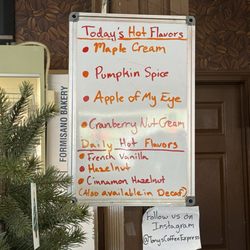 Today's Hot Flavors
Maple Cream
Pumpkin Spice
Apple of My Eye
Cranberry Nut Cream
Daily Hot Flavors
French Vanilla
Hazelnut
Cinnamon Hazelnut
(Also available in Decaf)
FORMISANO BAKERY
Follow us on
Instagram
@TonysCoffeeExpress